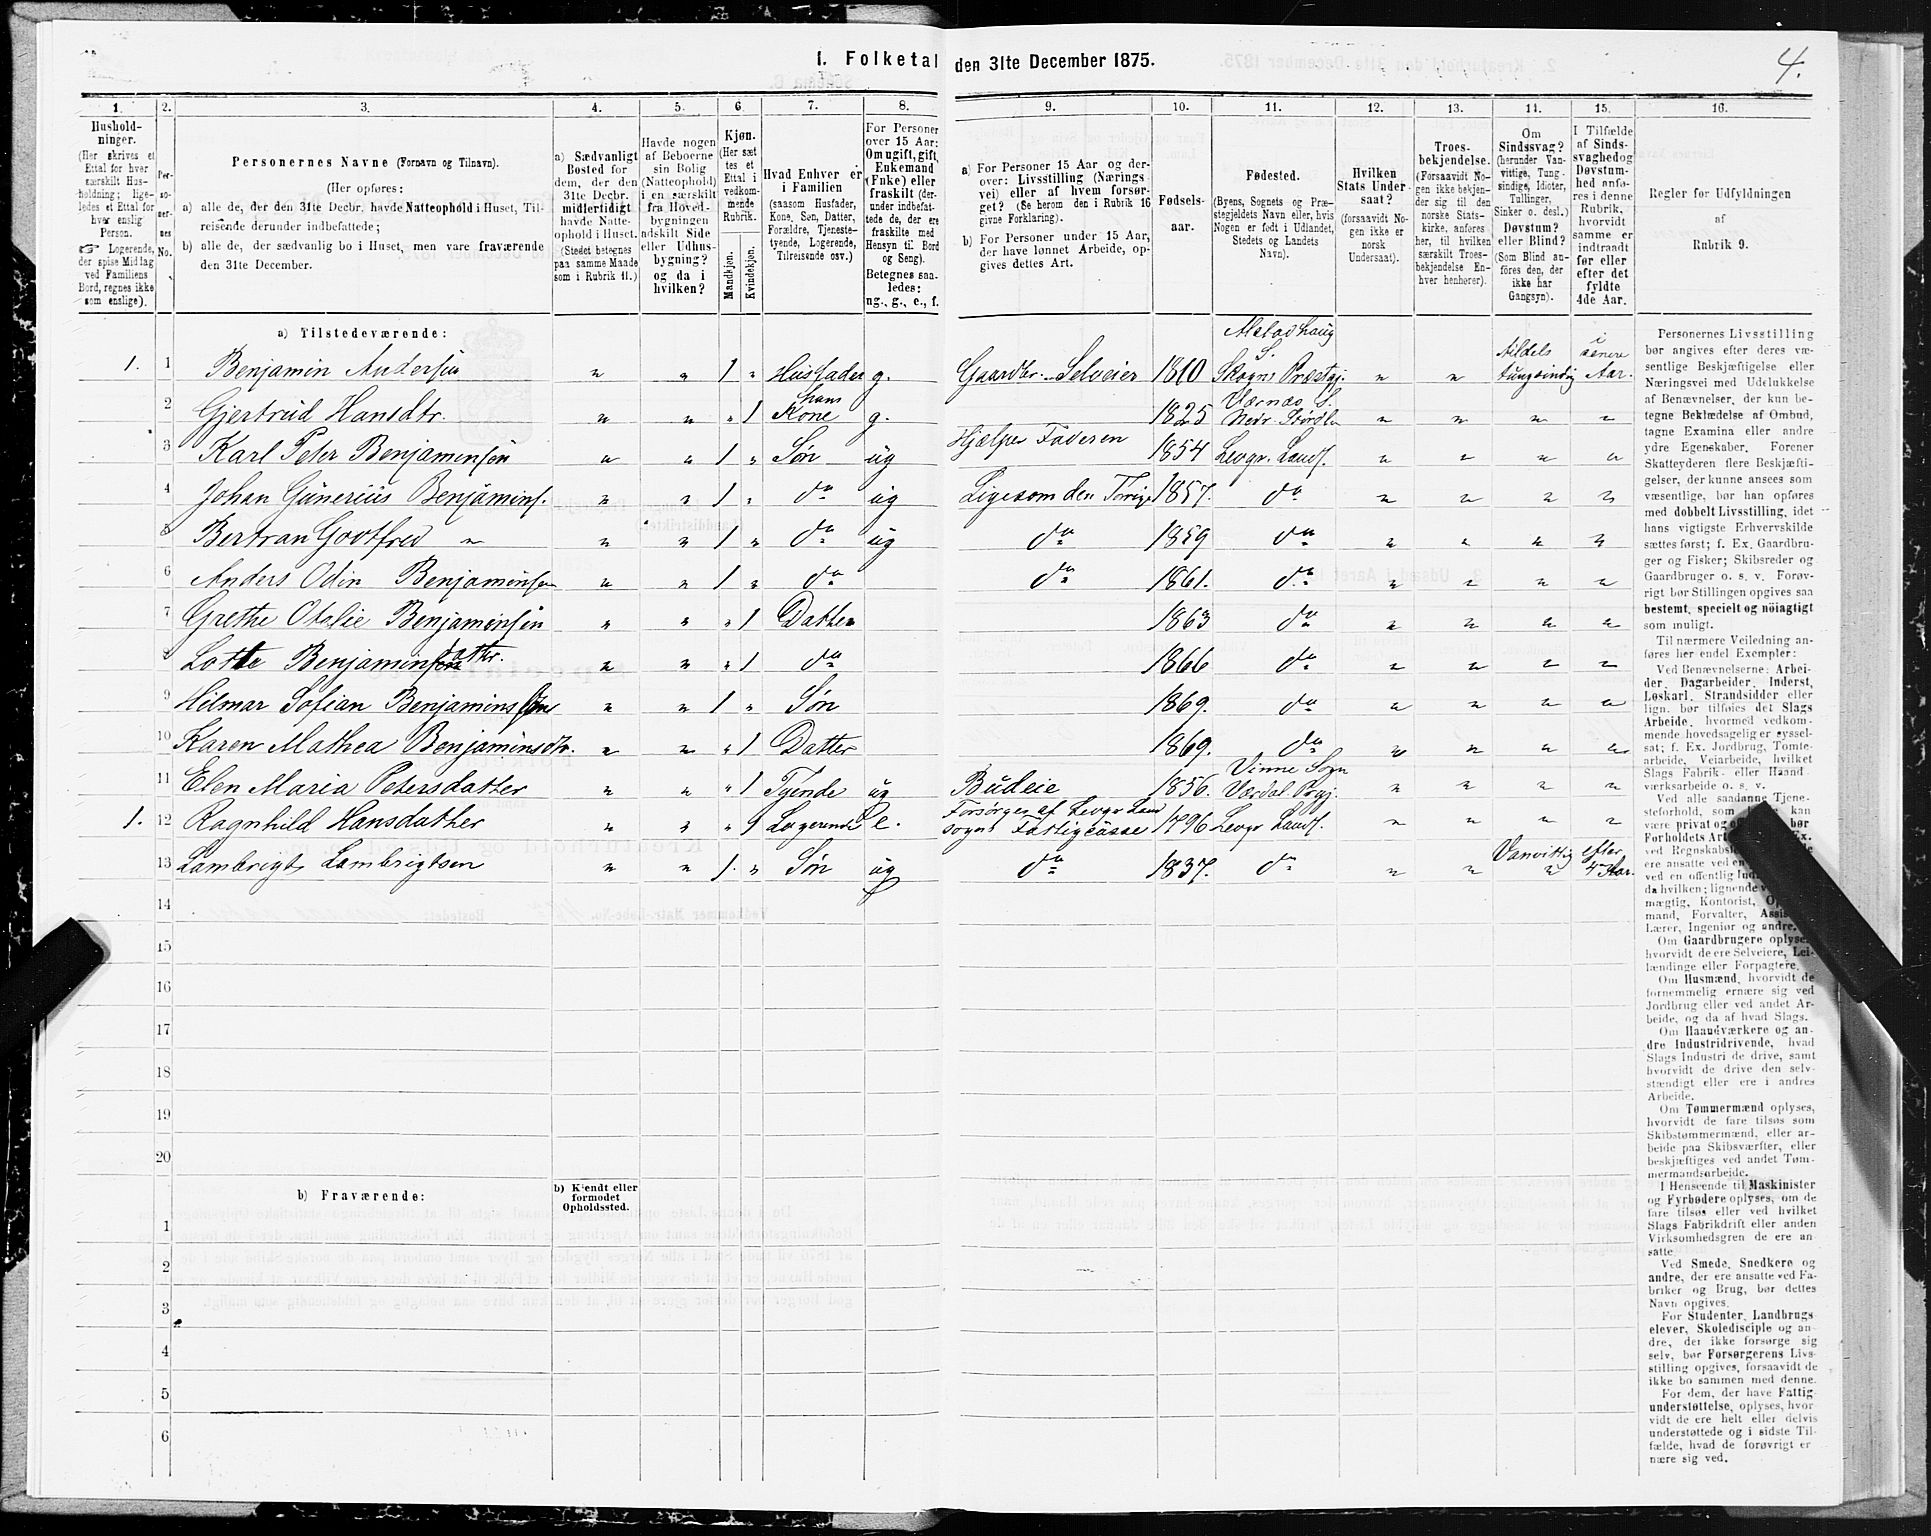 1. Folketal den 31te December 1875.
4.
1. 2. 3. 4. 5. 6. 7. 8. 9. 10. 11. 12. 13. 14. 15. 16.
Husholdninger.
(Her skrives et
Ettal for hver
særskilt Husholdning;
ligeledes et Ettal for
hver enslig
Person.
☞ Logerende,
der spise Middag
ved Familiens
Bord, regnes ikke
som enslige).
Personernes No.
Personernes Navne (Fornavn og Tilnavn).
(Her opføres:
a) alle de, der den 31te Decbr. havde Natteophold i Huset, Tilreisende
derunder indbefattede;
b) alle de, der sædvanlig bo i Huset, men vare fraværende
den 31te December.
a) Sædvanligt
Bosted for
dem, der den
31te Decbr.
midlertidigt
havde Natteophold
i Huset.
(Stedet betegnes
paa samme Maade
som i Rubrik 11.)
Havde nogen
af Beboerne
sin Bolig
(Natteophold)
i en særskilt
fra Hovedbygningen
adskilt Side
eller Udhusbygning?
og da i
hvilken?
Kjøn.
(Her sættes
et
Ettal i
vedkommende
Rubrik.
Mandkjøn.
Kvindekjøn.
Hvad Enhver er
i Familien
(saasom Husfader,
Kone, Søn, Datter,
Forældre, Tjenestetyende,
Logerende,
Tilreisende osv.)
For Personer
over 15 Aar:
Om ugift, gift,
Enkemand
(Enke) eller
fraskilt (derunder
indbefattede
de, der ere
fraskilte med
Hensyn til Bord
og Seng).
Betegnes saaledes:
ug., g., e., f.
a) For Personer 15 Aar og derover:
Livsstilling (Næringsvei)
eller af hvem forsørget?
(Se herom den i Rubrik 16
givne Forklaring).
b) For Personer under 15 Aar,
der have lønnet Arbeide, opgives
dettes Art.
Fødselsaar.
Fødested.
(Byens, Sognets og Præstegjeldets
Navn eller, hvis
Nogen er født i Udlandet,
Stedets og Landets
Navn).
Hvilken
Stats Undersaat?
(forsaavidt Nogen
ikke er
norsk
Undersaat).
Troesbekjendelse.
(Forsaavidt Nogen
ikke bekjender
sig til den
norske Statskirke,
anføres
her, til hvilken
særskilt Troesbekjendelse
Enhver
henhører).
Om
Sindssvag?
(herunder Vanvittige,
Tungsindige,
Idioter,
Tullinger,
Sinker o. desl.)
Døvstum?
eller Blind?
(Som Blind anføres
den, der
ikke har
Gangsyn).
I Tilfælde
af Sindssvaghed
og
Døvstumhed
anføres
i denne
Rubrik,
hvorvidt
samme er
indtraadt
før eller
efter det
fyldte
4de Aar.
Regler for Udfyldningen
af
Rubrik 9.
a) Tilstedeværende:
1. 1 Benjamin Andersen " " 1 " Husfader g. Gaardbr. Selveier 1810 Alstadhaug S. Skogns Præstgj. " " tildels tungsindig i senere Aar.
2 Gjertrud Hansdtr. " " " 1 hans Kone g. 1825 Værnæs S. Nedr. Stördln " " " "
3 Karl Peter Benjaminsen " " 1 " Søn ug Hjælper Faderen 1854 Levgr. Lands. " " " "
4 Johan Gunerius Benjamins. " " 1 " do ug Ligesom den Forrige 1857. do " " " "
5 Bertran Godtfred " " " 1 " do ug do 1859 do " " " "
6 Anders Odin Benjaminsen " " 1 " do do 1861. do " " " "
7 Grethe Otalie Benjaminsen " " " 1 Datter 1863 do " " " "
8 Lotte Benjaminsdatter. " " " 1 do 1866 do " " " "
9 Hilmar Sofian Benjaminsen " " 1 " Søn 1869. do " " " "
10 Karen Mathea Benjaminsdtr. " " " 1 Datter 1869. do " " " "
11 Elen Maria Petersdatter " " " 1 Tyende ug Budeie 1856. Vinne Sogn Værdal Prgj. " " " "
1. 12 Ragnhild Hansdatter " " " 1 Logerende e. Forsørges af Levgr Landsogns Fattigcasse 1796 Levgr Lands. " " " "
13 Lambrigt Lambrigtsen " " 1. " Søn ug do 1837. do " " Vanvittig " efter 4de Aar.
14
15
16
17
18
19
20
b) Fraværende:
b) Kjendt eller
formodet
Opholdssted.
1
2
3
4
5
6
Personernes Livsstilling
bør angives efter deres væsentlige
Beskjæftigelse eller
Næringsvei med Udelukkelse
af Benævnelser, der kun betegne
Beklædelse af Ombud,
tagne Examina eller andre
ydre Egenskaber. Forener
Skatteyderen flere Beskjæftigelser,
der kunne ansees som
væsentlige, bør han opføres
med dobbelt Livsstilling, idet
hans vigtigste Erhvervskilde
sættes først; f. Ex. Gaardbruger
og Fisker; Skibsreder og
Gaardbruger o. s. v. Forøvrigt
bør Stillingen opgives saa
bestemt, specielt og nöiagtigt
som muligt.
Til nærmere Veiledning anføres
her endel Exempler:
Ved Benævnelserne: Arbeider,
Dagarbeider, Inderst,
Løskarl, Strandsidder eller
lign. bør tilføies det Slags
Arbeide, hvormed vedkommende
hovedsagelig er sysselsat;
f. Ex. Jordbrug, Tomtearbeide,
Veiarbeide, hvilket
Slags Fabrik- eller Haandværksarbeide
o. s. v.
Ved alle saadanne Tjenesteforhold,
som kan
være privat og bør
Forholdets
ved
ere ansatte ved
ved en offentlig
da hvilken; lignende
mægtig, Kontorist,
mand, Forvalter,
Lærer, Ingeniør og andre.
Om Gaardbrugere oplyses,
hvorvidt de ere Selveiere, Leilændinge
eller Forpagtere.
Om Husmænd, hvorvidt de
fornemmelig ernære sig ved
Jordbrug eller ved andet Arbeide,
og da af hvad Slags.
Om Haandværkere og andre
Industridrivende, hvad
Slags Industri de drive, samt
hvorvidt de drive den selvstændigt
eller ere i andres
Arbeide.
Om Tømmermænd oplyses,
hvorvidt de fare tilsøs som
Skibstømmermænd, eller arbeide
paa Skibsværfter, eller
beskjæftiges ved andet Tømmermandsarbeide.
I Henseende til Maskinister
og Fyrbødere oplyses, om de
fare tilsøs eller ved hvilket
Slags Fabrikdrift eller anden
Virksomhedsgren de ere ansatte.
Ved Smede, Snedkere og
andre, der ere ansatte ved Fabriker
og Brug, bør dettes
Navn opgives.
For Studenter, Landbrugselever,
Skoledisciple og andre,
der ikke forsørge sig
selv, bør Forsørgerens Livsstilling
opgives, forsaavidt de
ikke bo sammen med denne.
For dem, der have Fattigunderstøttelse,
oplyses, hvorvidt
de ere helt eller delvis
understøttede og i sidste Tilfælde,
hvad de forøvrigt ernære
sig ved.